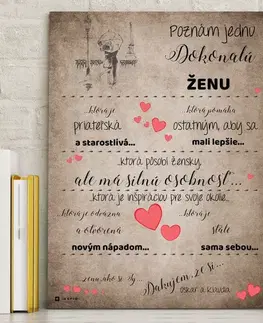 Poznám jednu
Dokonalú
ŽENU
...ktorá je ...ktorá pomáha
priateľská ostatným, aby sa
a starostlivá... mali lepšie...
...ktorá pôsobí žensky,
ale má silnú osobnosť...
...ktorá je inšpiráciou pre svoje okolie...
...ktorá je odvážna ...ktorá je
a otvorená stále
novým nápadom... sama sebou...
...ženu, ako si Ty... Ďakujem, že si...
Oskar a Klaudia